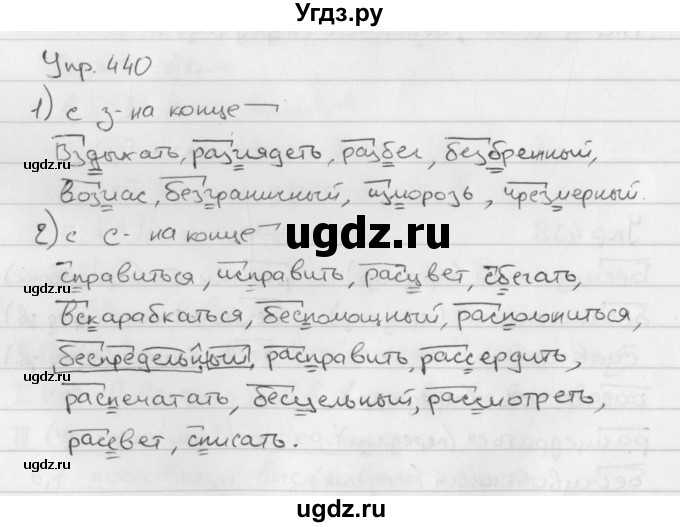 Угдз.ру
Упр. 440
1) с з- на конце
Вздыхать, разглядеть, разбег, безбрежный,
возглас, безграничный, изморозь, чрезмерный.
2) с с- на конце
справиться, исправить, расцвет, сбегать,
вскарабкаться, беспомощный, расположиться,
беспредельный, расправить, рассердить,
распечатать, бесцельный, рассмотреть,
рассвет, списать.
ugdz.ru
ugdz.ru
ugdz.ru
ugdz.ru
ugdz.ru
ugdz.ru
Угдз.ру